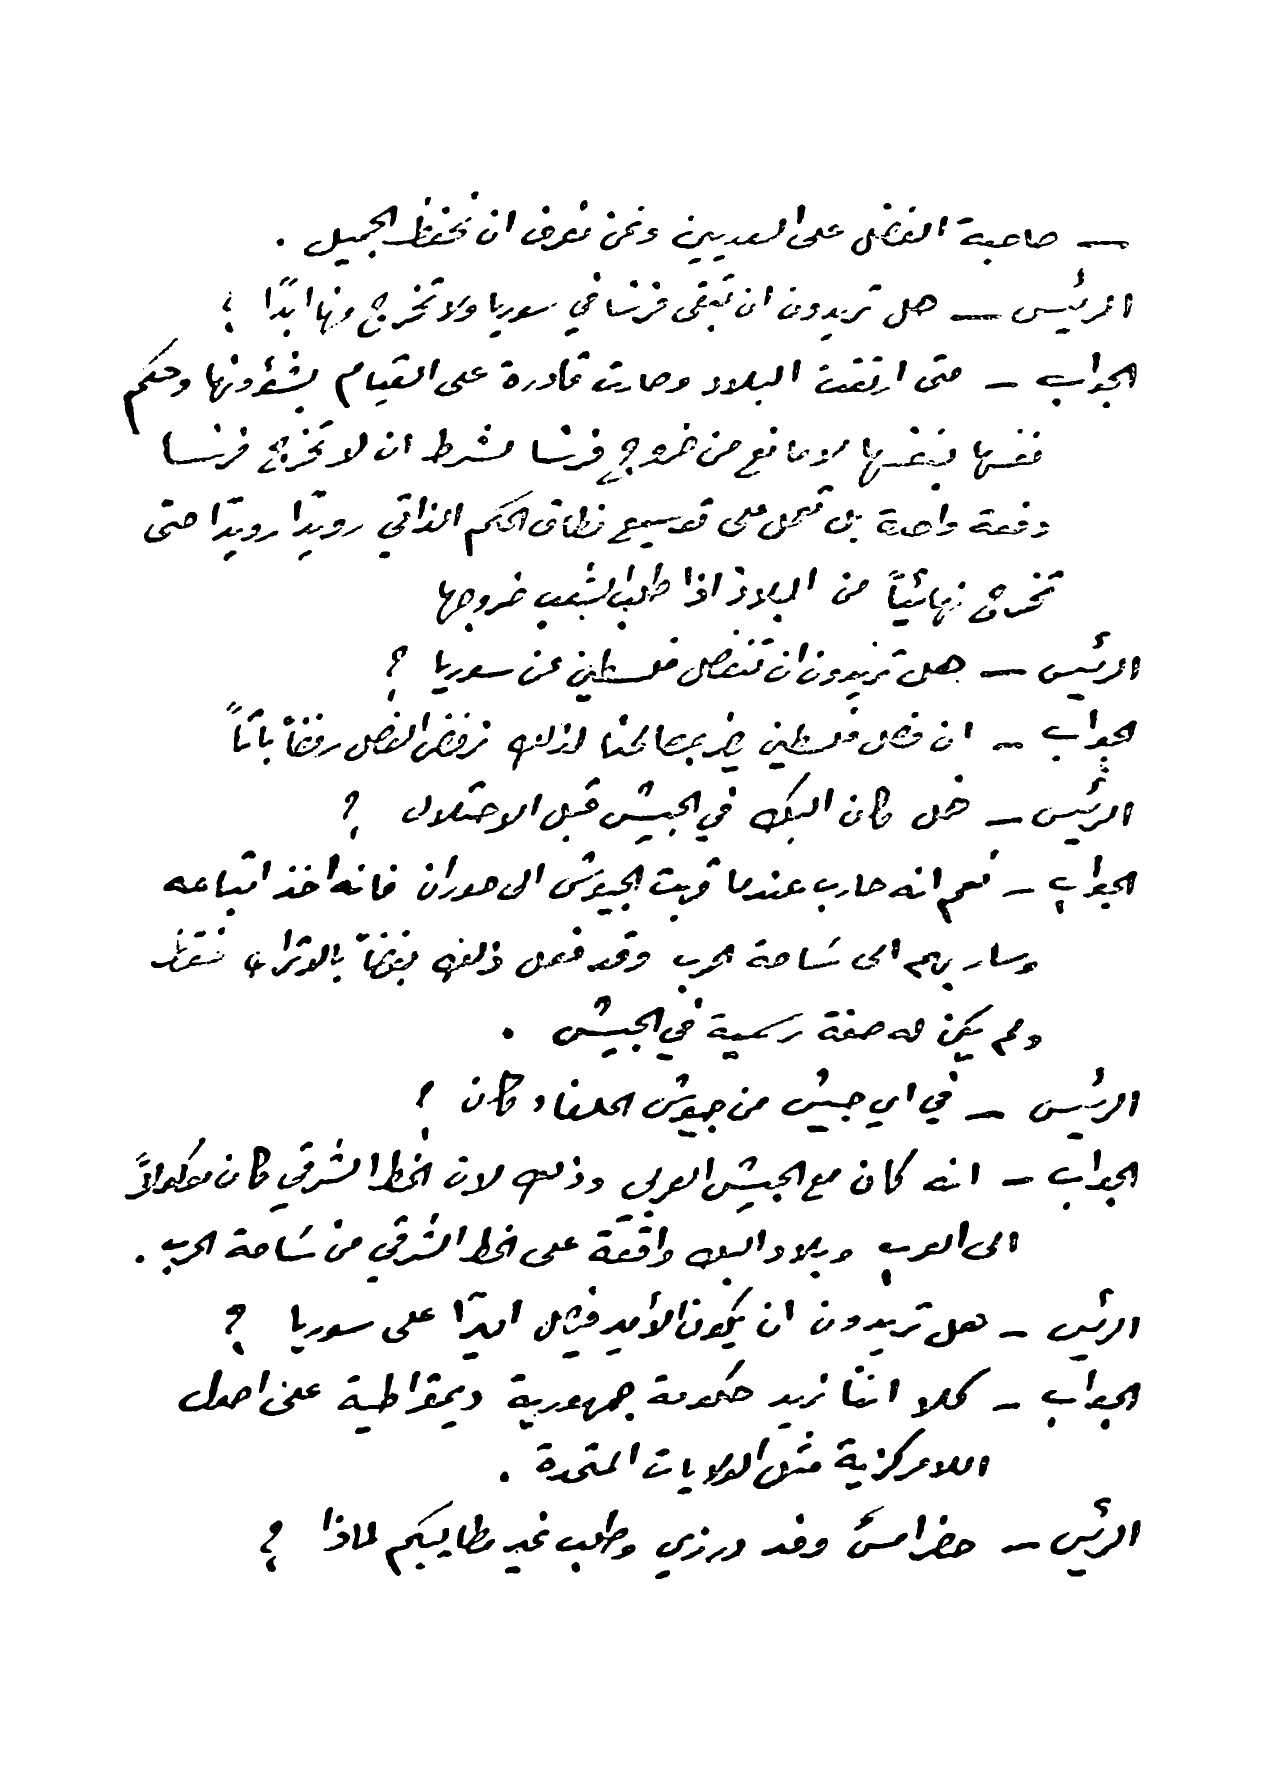 — صاحبة الفضل على السوريين ونحن نعرف ان نحفظ الجميل .
الرئيس — هل تريدون ان تبقى فرنسا في سوريا ولا تخرج منها ابدًا ؟
الجواب – متى ارتقت البلاد وصارت قادرة على القيام بشؤونها وحكم
نفسها بنفسها لا مانع من خروج فرنسا بشرط ان لا تخرج فرنسا
دفعة واحدة بل تعمل على توسيع نطاق الحكم الذاتي رويدًا رويدًا حتى
تخرج نهائياً من البلاد اذا طلب الشعب خروجها
الرئيس — هل تريدون ان تنفصل فلسطين عن سوريا ؟
الجواب – ان فصل فلسطين يضر بمصالحنا لذلك نرفض الفصل رفضاً باتاً
الرئيس – هل كان البك في الجيش قبل الاحتلال ؟
الجواب – نعم انه حارب عندما قربت الجيوش الى حوران فانه اخذ اتباعه
وسار بهم الى ساحة الحرب وقد فعل ذلك بغضاً بالاتراك فقط
ولم يكن له صفة رسمية في الجيش .
الرئيس – في اي جيش من جيوش الحلفاء كان ؟
الجواب – انه كان مع الجيش العربي وذلك لان الخط الشرقي كان موكولاً
الى العرب وبلاد البك واقعة على الخط الشرقي من ساحة الحرب .
الرئيس – هل تريدون ان يكون الأمير فيصل اميرًا على سوريا ؟
الجواب – كلا اننا نريد حكومة جمهورية ديمقراطية على اصول
اللامركزية مثل الولايات المتحدة .
الرئيس – حضر امس وفد درزي وطلب غير مطاليبكم لماذا ؟